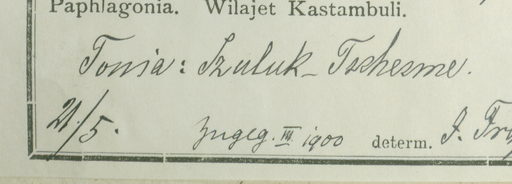 Paphlagonia. Wilajet Kastambuli.
Tossia: Szuluk-Tschesme.
21/5. Zugeg. III. 1900 determ. J.